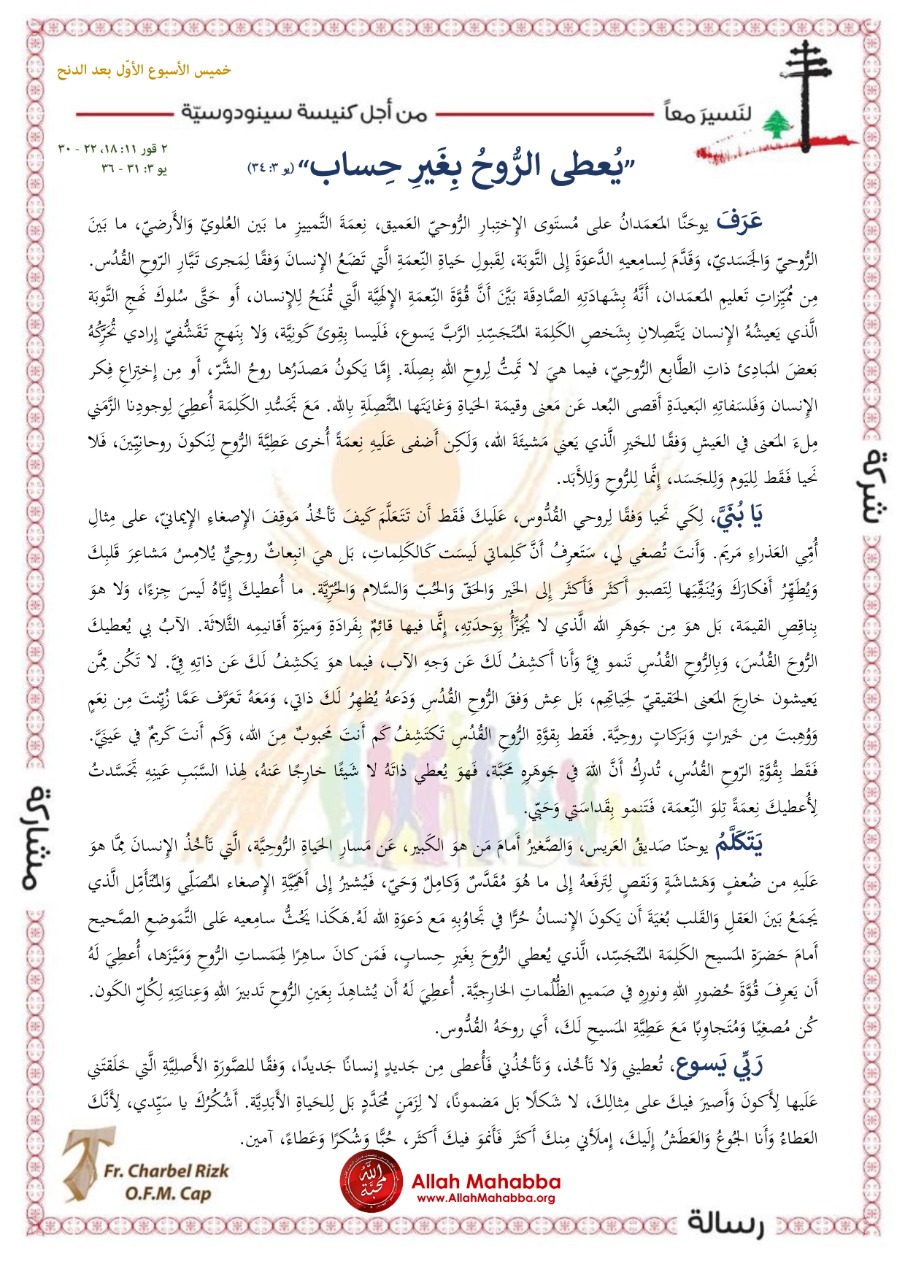 خميس الأسبوع الأوّل بعد الدنح
لنَسيرَ معاً
من أجل كنيسة سينودوسيّة
٢ قور ١١: ١٨، ٢٢ - ٣٠
يو ٣: ٣١ - ٣٦
”يُعطى الرُّوحُ بِغَيرِ حِساب“ (يو ٣: ٣٤)
عَرَفَ يوحَنَّا المَعمَدانُ على مُستَوى الإختِبارِ الرُّوحيّ العميق، نِعمَةَ التَّمييزِ ما بَين العُلويّ والأَرضيّ، ما بَينَ
الرُّوحيّ والجَسَديّ، وَقَدَّمَ لِسامعيهِ الدَّعوَةَ إلى التَّوبَة، لِقَبولِ حَياةِ النِّعمَةِ الَّتي تَضَعُ الإنسانَ وَفقًا لِمَجرى تَيَّارِ الرّوحِ القُدُس.
مِن مُمَيِّزاتِ تَعليمِ المَعمَدان، أَنَّهُ بِشَهادَتِهِ الصَّادِقَة بَيَّنَ أَنَّ قُوَّةَ النِّعمَةِ الإلَهِيَّةِ الَّتي تُمنَحُ لِلإنسان، أَو حَتَّى سُلوكَ نَهجِ التَّوبَة
الَّذي يَعيشُهُ الإنسان يَتَّصِلانِ بِشَخصِ الكَلِمَة المُتَجَسِّد الرَّبِّ يَسوع، فَلَيسا بِقِوىً كَونِيَّة، وَلا بِنَهجٍ تَقَشُّفيّ إرادي تُحَرِّكُهُ
بَعضَ المَبادِئ ذاتِ الطَّابِع الرُّوحِيّ، فيما هيَ لا تَمِتُّ لِروحِ اللهِ بِصِلَة. إمَّا يَكونُ مَصدَرُها روحُ الشَّرّ، أَو مِن إختِراعِ فِكرِ
الإنسانِ وَفَلسَفاتِهِ البَعيدَةِ أقصى البُعد عَن مَعنى وقيمَةِ الحَياةِ وَغايَتَها المُتَّصِلَةِ بِالله. مَعَ تَجَسُّدِ الكَلِمَة أُعطِيَ لِوجودِنا الزَّمَني
مِلءَ المَعنى في العَيشِ وَفقًا للخَيرِ الَّذي يَعني مَشيئَةَ الله، وَلَكِن أَضفى عَلَيهِ نِعمَةً أُخرى عَطِيَّةَ الرُّوحِ لِنَكونَ روحانِيّينَ، فَلا
نَحيا فَقَط لِليَوم وَلِلجَسَد، إنَّما للرُّوحِ وَلِلأَبَد.
يَا بُنَيَّ، لِكَي تَحيا وَفقًا لِروحي القُدُّوس، عَلَيكَ فَقَط أَن تَتَعَلَّمَ كَيفَ تَأخُذُ مَوقِفَ الإصغاءِ الإيمانيّ، على مِثالِ
أُمِّي العَذراءِ مَريَم. وَأَنتَ تُصغي لي، سَتَعرِفُ أَنَّ كَلِماتي لَيسَت كَالكَلِماتِ، بَل هيَ انبِعاثٌ روحِيٌّ يُلامِسُ مَشاعِرَ قَلبِكَ
وَيُطَهِّرُ أَفكارَكَ وَيُنَقِّيَها لِتَصبو أَكثَر فَأَكثَر إلى الخَير والحَقّ والحُبّ والسَّلام والحُرِّيَّة. ما أُعطيكَ إيَّاهُ لَيسَ جِزءًا، وَلا هو
بِناقِصِ القيمَة، بَل هوَ مِن جَوهَرِ الله الَّذي لا يُجَزَّأُ بِوَحدَتِهِ، إنَّما فيها قائِمٌ بِفَرادَةِ وَميزَةِ أَقانيمِه الثَّلاثَة. الآبُ بي يُعطيكَ
الرّوحَ القُدُسَ، وَبِالرُّوحِ القُدُسِ تَنمو فِيَّ وَأَنا أَكشِفُ لَكَ عَن وَجهِ الآب، فيما هوَ يَكشِفُ لَكَ عَن ذاتِهِ فِيَّ. لا تَكُن مِمَّن
يَعيشون خارِجَ المَعنى الحَقيقيّ لِحَياتِهِم، بَل عِش وَفقَ الرُّوحِ القُدُسِ وَدَعهُ يُظهِرُ لَكَ ذاتي، وَمَعَهُ تَعَرَّف عَمَّا زُيِّنتَ مِن نِعَمٍ
وَوُهِبتَ مِن خَيراتٍ وَبَرَكاتٍ روحِيَّة. فَقَط بِقوَّةِ الرُّوحِ القُدُسِ تَكتَشِفُ كَم أَنتَ مَحبوبٌ مِنَ الله، وَكَم أَنتَ كَريمٌ في عَينَيَّ.
فَقَط بِقُوَّةِ الرّوحِ القُدُس، تُدرِكُ أَنَّ اللهَ في جَوهَرِهِ مَحَبَّة، فَهوَ يُعطي ذاتَهُ لا شَيئًا خارِجًا عَنهُ، لِهذا السَّبَبِ عَينِهِ تَجَسَّدتُ
لِأُعطيكَ نِعمَةً تِلوَ النِّعمَة، فَتَنمو بِقَداسَتي وَحَبّي.
يَتَكَلَّمُ يوحنّا صَديقُ العَريس، والصَّغيرُ أَمامَ مَن هوَ الكَبير، عَن مَسارِ الحَياةِ الرُّوحِيَّة، الَّتي تَأخُذُ الإنسانَ مِمَّا هوَ
عَلَيهِ من ضُعفٍ وَهَشاشَةٍ وَنَقصٍ لِتَرفَعهُ إلى ما هُوَ مُقَدَّسٌ وَكامِلٌ وَحَيّ، فَيُشيرُ إلى أَهَمِّيَّةِ الإصغاء المُصَلّي والمُتَأَمِّل الَّذي
يَجمَعُ بَينَ العَقلِ والقَلب بُغيَةَ أَن يَكونَ الإنسانُ حُرًّا في تَجاوُبِهِ مَع دَعوَةِ الله لَهُ.هَكَذا يَحُثُّ سامِعيه عَلى التَّموضعِ الصَّحيح
أمامَ حَضرَةِ المَسيح الكَلِمَة المُتَجَسِّد، الَّذي يُعطي الرّوحَ بِغَيرِ حِسابٍ، فَمَن كانَ ساهِرًا لِهَمَساتِ الرُّوحِ وَمَيَّزَها، أُعطِيَ لَهُ
أَن يَعرِفَ قُوَّةَ حُضورِ اللهِ ونورِهِ في صَميمِ الظُّلُماتِ الخارِجِيَّة. أُعطِيَ لَهُ أَن يُشاهِدَ بِعَينِ الرُّوحِ تَدبيرَ اللهِ وَعِنايَتِهِ لِكُلِّ الكَون.
كُن مُصغِيًا وَمُتَجاوِبًا مَعَ عَطِيَّةِ المَسيحِ لَكَ، أَي روحَهُ القُدُّوس.
رَبِّي يَسوع، تُعطيني وَلا تَأخُذ، وَتَأخُذُني فَأُعطى مِن جَديدٍ إنسانًا جَديدًا، وَفقًا للصّورَةِ الأَصلِيَّةِ الَّتي خَلَقتَني
عَلَيها لِأَكونَ وَأَصيرَ فيكَ على مِثالِكَ، لا شَكلًا بَل مَضمونًا، لا لِزَمَنٍ مُحَدَّدٍ بَل للحَياةِ الأَبَدِيَّة. أَشكُرُكَ يا سَيِّدي، لِأَنَّكَ
العَطاءُ وَأَنا الجُوعُ وَالعَطَشُ إلَيكَ، إملَأني مِنكَ أَكثَر فَأَنموَ فيكَ أَكثَر، حُبًّا وَشُكرًا وَعَطاءً، آمين.
شركة
مشاركة
رسالة
Fr. Charbel Rizk
O.F.M. Cap
الله محبّة
Allah Mahabba
www.AllahMahabba.org